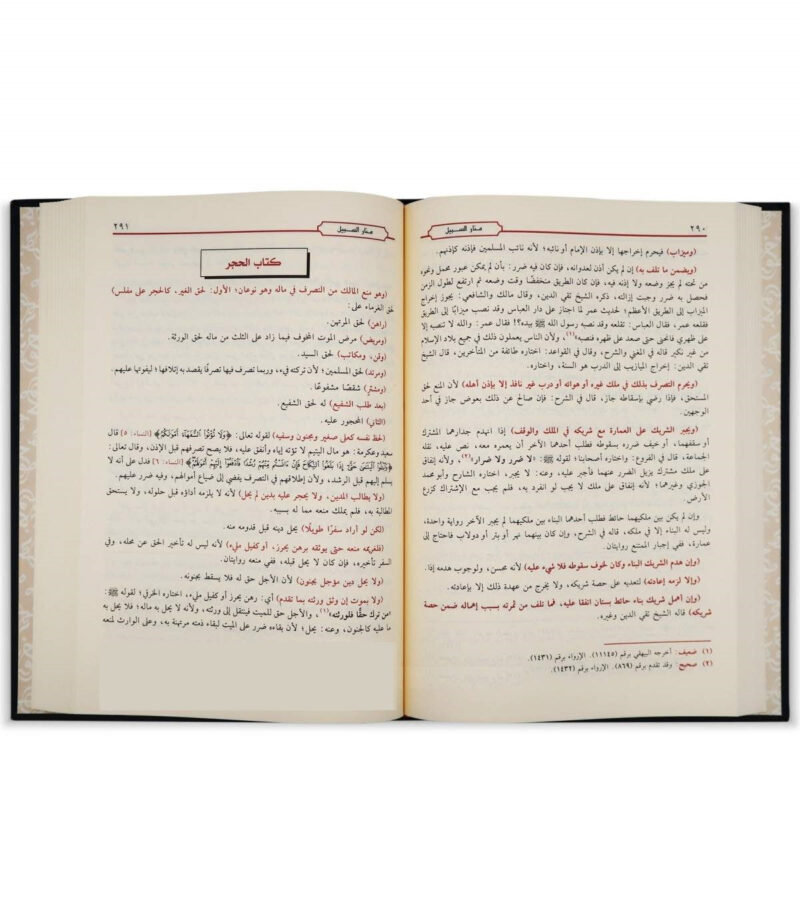 ٢٩٠
منار السبيل
(وميزاب) فيحرم إخراجها إلا بإذن الإمام أو نائبه؛ لأنه نائب المسلمين فإذنه كإذنهم.
(ويضمن ما تلف به) إن لم يكن أذن لعدوانه، فإن كان فيه ضرر: بأن لم يمكن عبور محمل ونحوه
من تحته لم يجز وضعه ولا إذنه فيه، فإن كان الطريق منخفضًا وقت وضعه ثم ارتفع لطول الزمن
فحصل به ضرر وجبت إزالته، ذكره الشيخ تقي الدين، وقال مالك والشافعي: يجوز إخراج
الميزاب إلى الطريق الأعظم؛ لحديث عمر لما اجتاز على دار العباس وقد نصب ميزابًا إلى الطريق
فقلعه عمر، فقال العباس: تقلعه وقد نصبه رسول الله ﷺ بيده؟! فقال عمر: والله لا تنصبه إلا
على ظهري فانحنى حتى صعد على ظهره فنصبه(١)، ولأن الناس يعملون ذلك في جميع بلاد الإسلام
من غير نكير قاله في المغني والشرح، وقال في القواعد: اختاره طائفة من المتأخرين، قال الشيخ
تقي الدين: إخراج الميازيب إلى الدرب هو السنة، واختاره.
(ويحرم التصرف بذلك في ملك غيره أو هوائه أو درب غير نافذ إلا بإذن أهله) لأن المنع لحق
المستحق، فإذا رضي بإسقاطه جاز، قال في الشرح: فإن صالح عن ذلك بعوض جاز في أحد
الوجهين.
(ويجبر الشريك على العمارة مع شريكه في الملك والوقف) إذا انهدم جدارهما المشترك
أو سقفهما، أو خيف ضرره بسقوطه فطلب أحدهما الآخر أن يعمره معه، نص عليه، نقله
الجماعة، قال في الفروع: واختاره أصحابنا؛ لقوله ﷺ: «لا ضرر ولا ضرار»(٢)، ولأنه إنفاق
على ملك مشترك يزيل الضرر عنهما فأجبر عليه، وعنه: لا يجبر، اختاره الشارح وأبو محمد
الجوزي وغيرهما؛ لأنه إنفاق على ملك لا يجب لو انفرد به، فلم يجب مع الإشتراك كزرع
الأرض.
وإن لم يكن بين ملكيهما حائط فطلب أحدهما البناء بين ملكيهما لم يجبر الآخر رواية واحدة،
وليس له البناء إلا في ملكه، قاله في الشرح، وإن كان بينهما نهر أو بئر أو دولاب فاحتاج إلى
عمارة، ففي إجبار الممتنع روايتان.
(وإن هدم الشريك البناء وكان لخوف سقوطه فلا شيء عليه) لأنه محسن، ولوجوب هدمه إذا.
(وإلا لزمه إعادته) لتعديه على حصة شريكه، ولا يخرج من عهدة ذلك إلا بإعادته.
(وإن أهمل شريك بناء حائط بستان اتفقا عليه، فما تلف من ثمرته بسبب إهماله ضمن حصة
شريكه) قاله الشيخ تقي الدين وغيره.
(١) ضعيف: أخرجه البيهقي برقم (١١١٤٥). الإرواء برقم (١٤٣١).
(٢) صحيح: وقد تقدم برقم (٨٦٩). الإرواء برقم (١٤٣٢).
منار السبيل
٢٩١
كتاب الحجر
(وهو منع المالك من التصرف في ماله وهو نوعان: الأول: لحق الغير، كالحجر على مفلس)
لحق الغرماء على:
(راهن) لحق المرتهن.
(ومريض) مرض الموت المخوف فيما زاد على الثلث من ماله لحق الورثة.
(وقن، ومكاتب) لحق السيد.
(ومرتد) لحق المسلمين؛ لأن تركته فيء، وربما تصرف فيها تصرفًا يقصد به إتلافها؛ ليفوتها عليهم.
(ومشترٍ) شقصًا مشفوعًا.
(بعد طلب الشفيع) له لحق الشفيع.
(الثاني) المحجور عليه.
(لحظ نفسه كعلى صغير ومجنون وسفيه) لقوله تعالى: ﴿وَلَا تُؤْتُوا السُّفَهَاءَ أَمْوَالَكُمُ﴾ [النساء: ٥] قال
سعيد وعكرمة: هو مال اليتيم لا تؤته إياه وأنفق عليه، فلا يصح تصرفهم قبل الإذن، وقال تعالى:
﴿وَابْتَلُوا الْيَتَامَىٰ حَتَّىٰ إِذَا بَلَغُوا النِّكَاحَ فَإِنْ آنَسْتُم مِّنْهُمْ رُشْدًا فَادْفَعُوا إِلَيْهِمْ أَمْوَالَهُمْ﴾ [النساء: ٦] فدل على أنه لا
يسلم إليهم قبل الرشد، ولأن إطلاقهم في التصرف يفضي إلى ضياع أموالهم، وفيه ضرر عليهم.
(ولا يطالب المدين، ولا يحجر عليه بدين لم يحل) لأنه لا يلزمه أداؤه قبل حلوله، ولا يستحق
المطالبة به، فلم يملك منعه مما له بسببه.
(لكن لو أراد سفرًا طويلًا) يحل دينه قبل قدومه منه.
(فلغريمه منعه حتى يوثقه برهن يحرز، أو كفيل مليء) لأنه ليس له تأخير الحق عن محله، وفي
السفر تأخيره، فإن كان لا يحل قبله، ففي منعه روايتان.
(ولا يحل دين مؤجل بجنون) لأن الأجل حق له فلا يسقط بجنونه.
(ولا بموت إن وثق ورثته بما تقدم) أي: رهن يحرز أو كفيل مليء، اختاره الخرقي؛ لقوله ﷺ:
«من ترك حقًا فلورثته»(١)، والأجل حق للميت فينتقل إلى ورثته، ولأنه لا يحل به ماله؛ فلا يحل به
ما عليه كالجنون، وعنه: يحل؛ لأن بقاءه ضرر على الميت لبقاء ذمته مرتهنة به، وعلى الوارث لمنعه